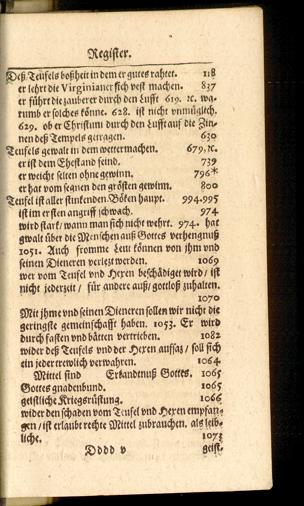 Register.
Deß Teufels boßheit in dem er gutes rahtet. 118
er lehrt die Virginianer sich vest machen. 837
er führt die zauberer durch den Lufft 619. ꝛc. wa-
rumb er solches könne. 628. ist nicht vnmüglich.
629. ob er Christum durch den Lufft auf die Zin-
nen deß Tempels getragen. 630
Teufels gewalt in dem wettermachen. 679. ꝛc.
er ist dem Ehestand feind. 739
er weicht selten ohne gewinn. 796*
er hat vom segnen den grösten gewinn. 800
Teufel ist aller stinkenden Böken haupt. 994.995
ist im ersten angriff schwach. 974
wird stark / wann man sich nicht wehrt. 974. hat
gwalt über die Menschen auß Gottes verhengnuß
1051. Auch fromme Leut können von jhm vnd
seinen Dieneren verlezt werden. 1069
wer vom Teufel vnd Hexen beschädiget wird / ist
nicht jederzeit / für andere auß / gottloß zuhalten.
1070
Mit jhme vnd seinen Dieneren sollen wir nicht die
geringste gemeinschafft haben. 1053. Er wird
durch fasten vnd bätten vertrieben. 1082
wider deß Teufels vnd der Hexen aufsaz / soll sich
ein jeder trewlich verwahren. 1064
Mittel sind Erkandtnuß Gottes. 1065
Gottes gnadenbund. 1065
geistliche Kriegsrüstung. 1066
wider den schaden vom Teufel vnd Hexen empfan-
gen / ist erlaubt rechte Mittel zubrauchen. als leib-
liche. 1073
Dddd v geist-